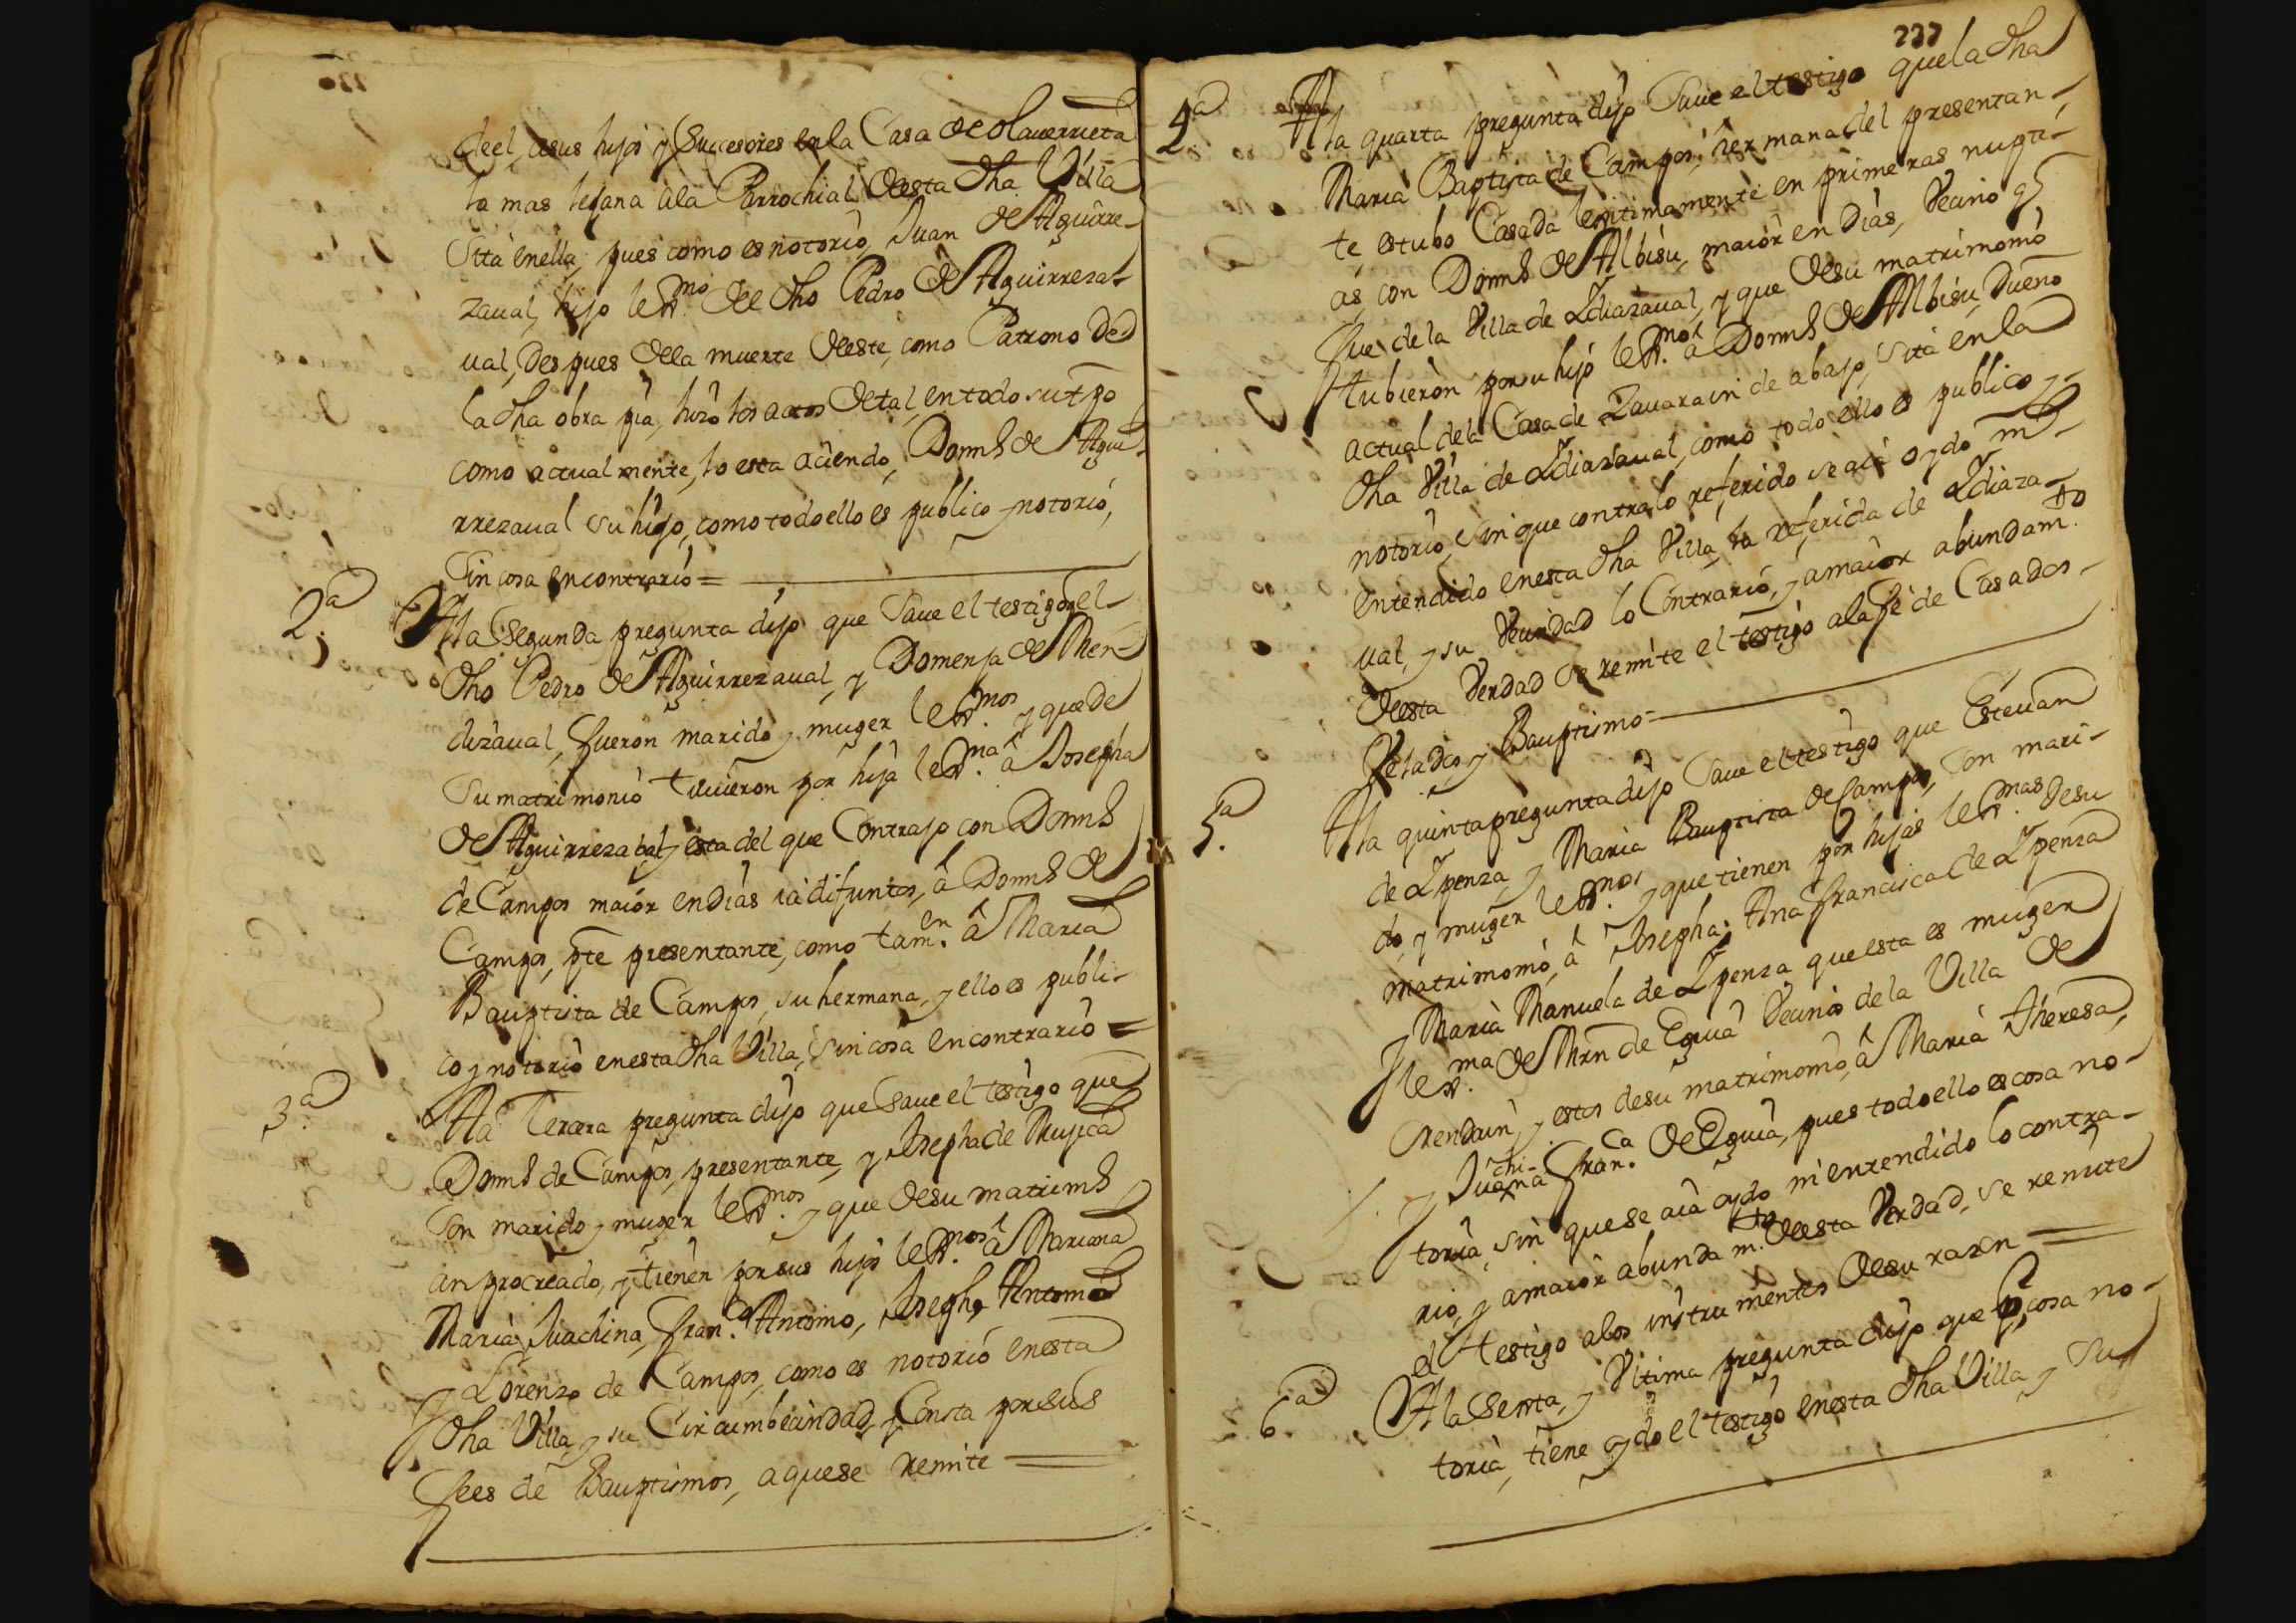 deel, a sus hijos y Succesores en la Casa de olauerrieta
la mas lejana a la Parrochial desta dha Villa
Sita en ella, pues como es notorio, Juan de Aguirre-
zaual, hijo legmo del dho Pedro de Aguirreza-
ual, Despues de la muerte deeste, como Patrono de
la dha obra pia, hizo los actos de tal, en todo su tpo
como actualmente, lo esta aciendo, Domhs de Agui-
rrezaual su hijo, como todo ello es publico y notorio,
Sin cosa en contrario =
2ª A la Segunda pregunta dijo que Saue el testigo, q el
dho Pedro de Aguirrezaual, y Domenja de Men-
dizaual, fueron marido y muger legmos y que de
Su matrimonio tuuieron por hija legma â Josepha
de Aguirrezabal, y esta del que Contrajo con Domhs
de Campos maior en dias ia difuntos, â Domhs de
Campos, pte presentante, como tamen â Maria
Bauptista de Campos, su hermana, y ello es publi-
co y notorio en esta dha Villa, Sin cosa en contrario =
3ª A la Tercera pregunta dijo que Saue el testigo que
Domhs de Campos, presentante, y Josepha de Mujica
Son marido y muger legmos y que de su matrimo
an procreado, y tienen por sus hijos legmos â Mariana
Maria Juachina, Franco Antonio, Joseph Antonio
y Lorenzo de Campos, como es notorio en esta
dha Villa y su Circumbecindad, y Consta por sus
fees de Bauptismos, a que se remite
237
4ª A la quarta pregunta dijo Saue el testigo que la dha
Maria Baptista de Campos, hermana del presentan-
te estubo Casada legitimamente en primeras nupti-
as, con Domhs de Albisu, maior en Dias, Vecino q
fue de la Villa de Ydiazaual, y que de su matrimonio
tubieron por su hijo legmo â Domhs de Albisu, Dueño
actual de la Casa de Zauarain de abajo, Sita en la
dha Villa de Ydiazaual, como todo ello es publico y
notorio, Sin que contra lo referido se aia oydo ni
entendido en esta dha Villa, la referida de Ydiaza-
ual, y su Vecindad lo Contrario, y a maior abundamto
deesta Verdad se remite el testigo a la fe de Casados
Velados, y Bauptismo =
5ª A la quinta pregunta dijo Saue el testigo que Esteuan
de Ypenza, y Maria Bauptista de Campos, Son mari-
do, y muger legmos y que tienen por hijas legmas de su
matrimonio, â Josepha: Ana francisca de Ypenza
y Maria Manuela de Ypenza, que esta es muger
legma de Mrn de Eguia Vecinos de la Villa de
, y estos de su matrimonio, â Maria Theresa,
y Juachina Franca de Eguia, pues todo ello es cosa no-
toria, sin que se aia oydo ni entendido lo contra-
rio, y a maior abundamto deesta Verdad, se remite
el testigo a los instrumentos de su razon
6ª A la Sexta, y Vltima pregunta dijo que por cosa no-
toria, tiene oydo el testigo en esta dha Villa y Su